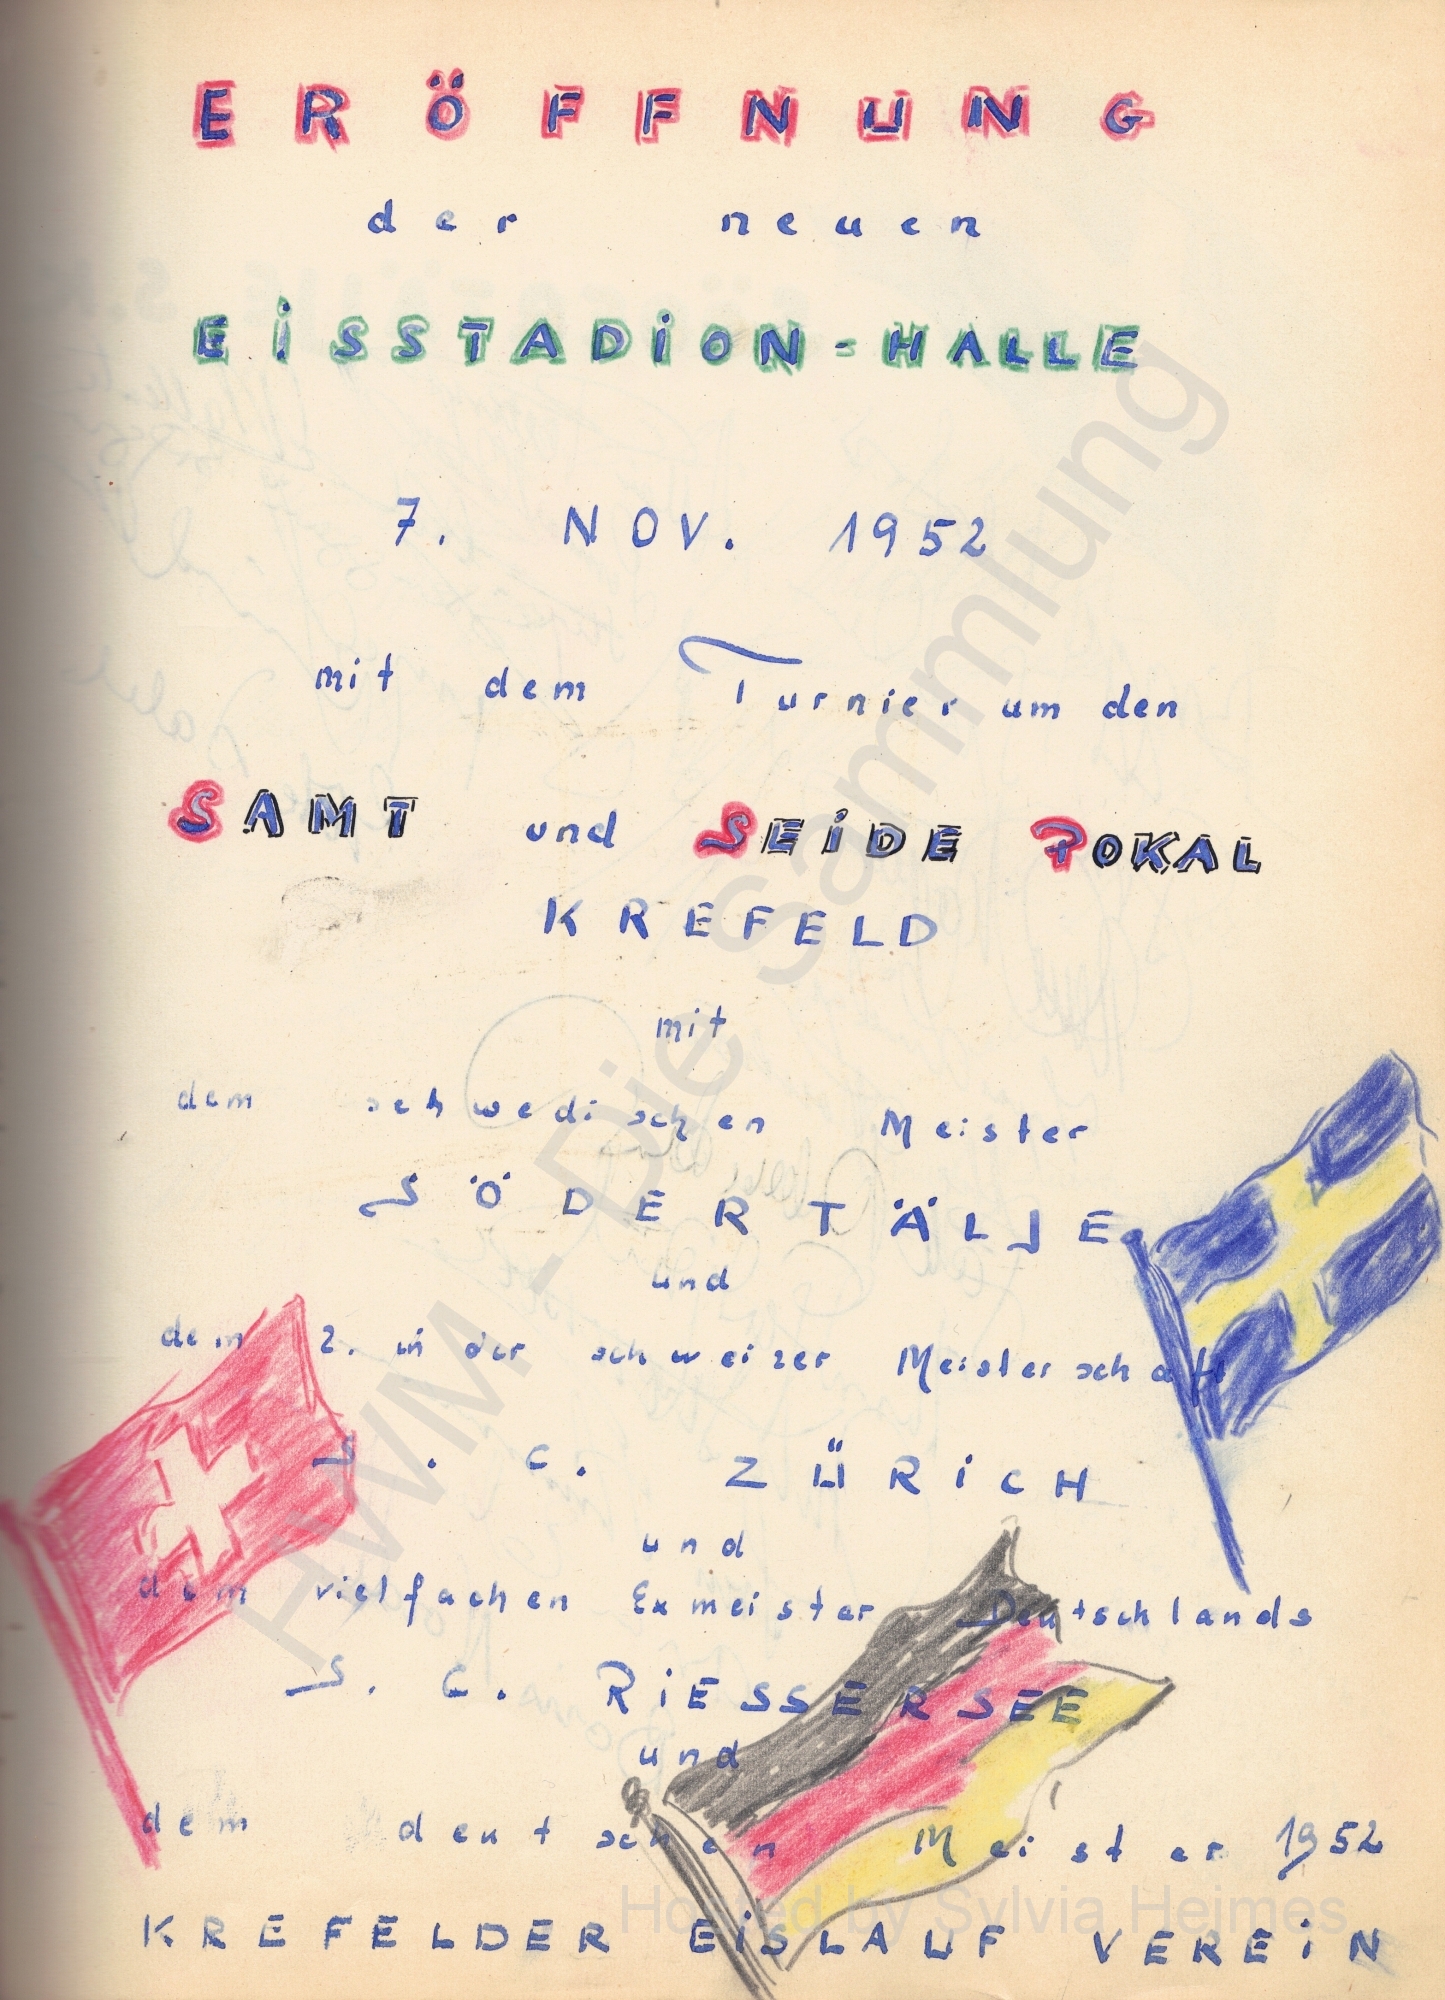 ERÖFFNUNG
der neuen
EiSSTADiON-HALLE
7. NOV. 1952
mit dem Turnier um den
SAMT und SEiDE POKAL
KREFELD
mit
dem schwedischen Meister
SÖDERTÄLJE
und
dem 2. in der schweizer Meisterschaft
S. C. ZÜRiCH
und
dem vielfachen Exmeister Deutschlands
S. C. RiESSERSEE
und
dem deutschen Meister 1952
KREFELDER EiSLAUF VEREiN
HWM - Die Sammlung
Hosted by Sylvia Heimes